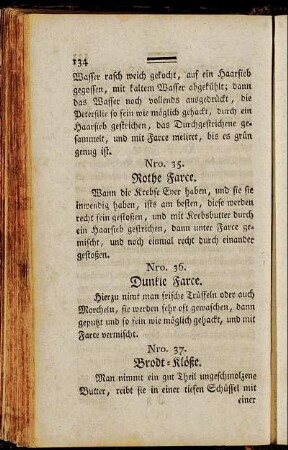 134
Wasser rasch weich gekocht, auf ein Haarsieb
gegossen, mit kaltem Wasser abgekühlt; dann
das Wasser noch vollends ausgedrückt, die
Petersilie so fein wie möglich gehackt, durch ein
Haarsieb gestrichen, das Durchgestrichene ge-
sammelt, und mit Farce meliret, bis es grün
genug ist.
Nro. 35.
Rothe Farce.
Wann die Krebse Eyer haben, und sie sie
inwendig haben, ists am besten, diese werden
recht fein gestoßen, und mit Krebsbutter durch
ein Haarsieb gestrichen, dann unter Farce ge-
mischt, und noch einmal recht durch einander
gestoßen.
Nro. 36.
Dunkle Farce.
Hierzu nimt man frische Trüffeln oder auch
Morcheln, sie werden sehr oft gewaschen, dann
geputzt und so fein wie möglich gehackt, und mit
Farce vermischt.
Nro. 37.
Brodt-Klöße.
Man nimmt ein gut Theil ungeschmolzene
Butter, reibt sie in einer tiefen Schüssel mit
einer